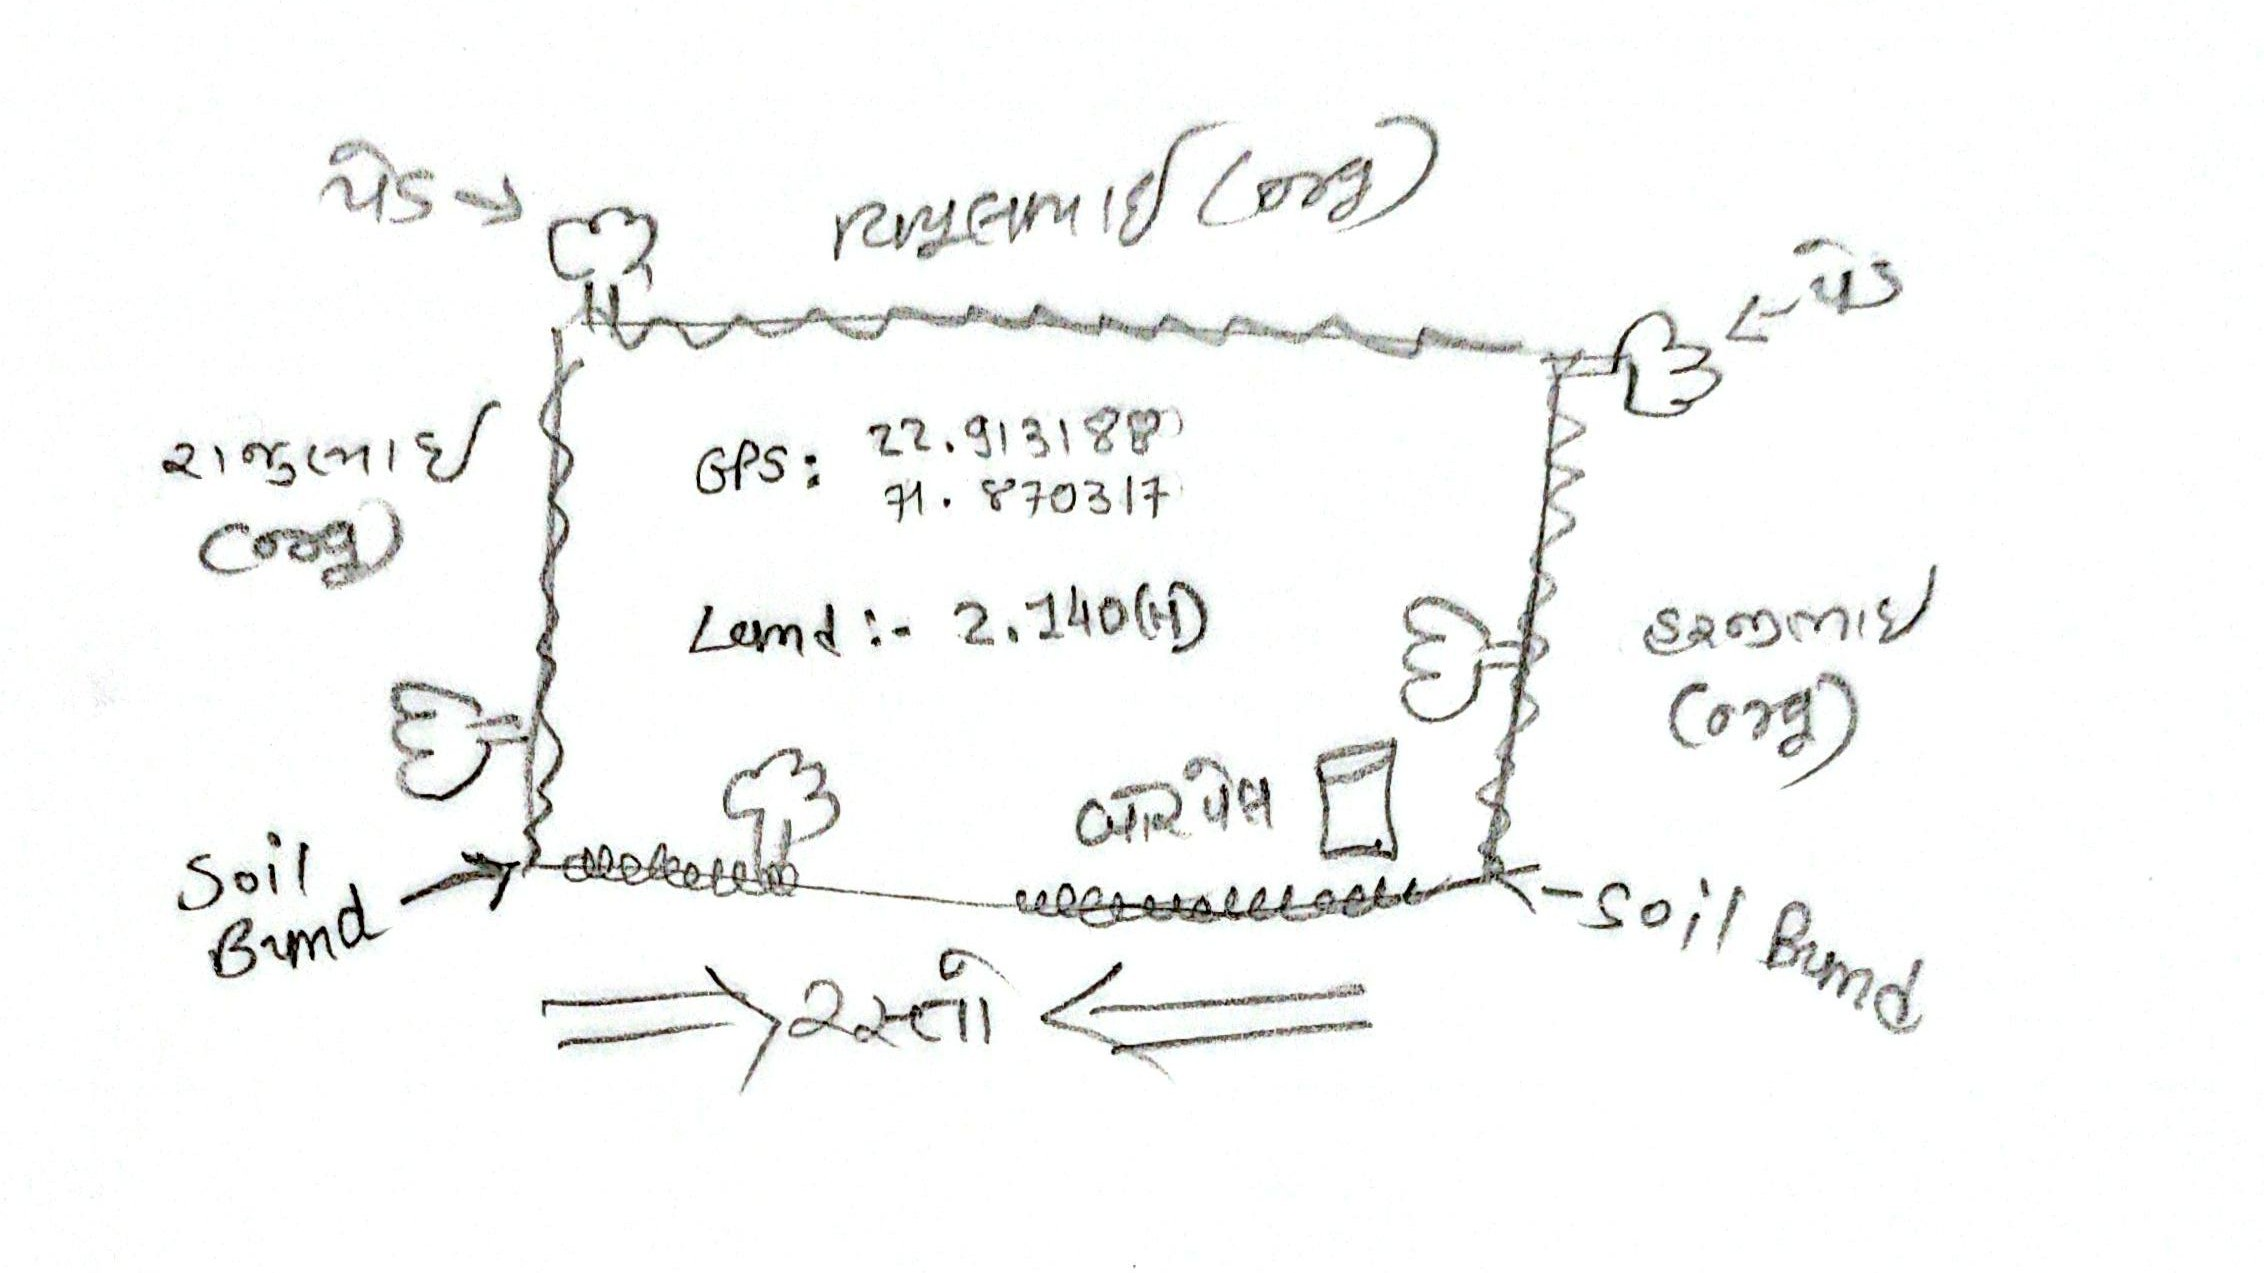 પેડ
(ઓર્ગ)
પેડ
GPS: 22.913188
71.870317
રાજુભાઇ
(ઓર્ગ)
Land :- 2.140(H)
હરજીભાઇ
(ઓર્ગ)
બોરવેલ
Soil
Bund
Soil Bund
રસ્તો